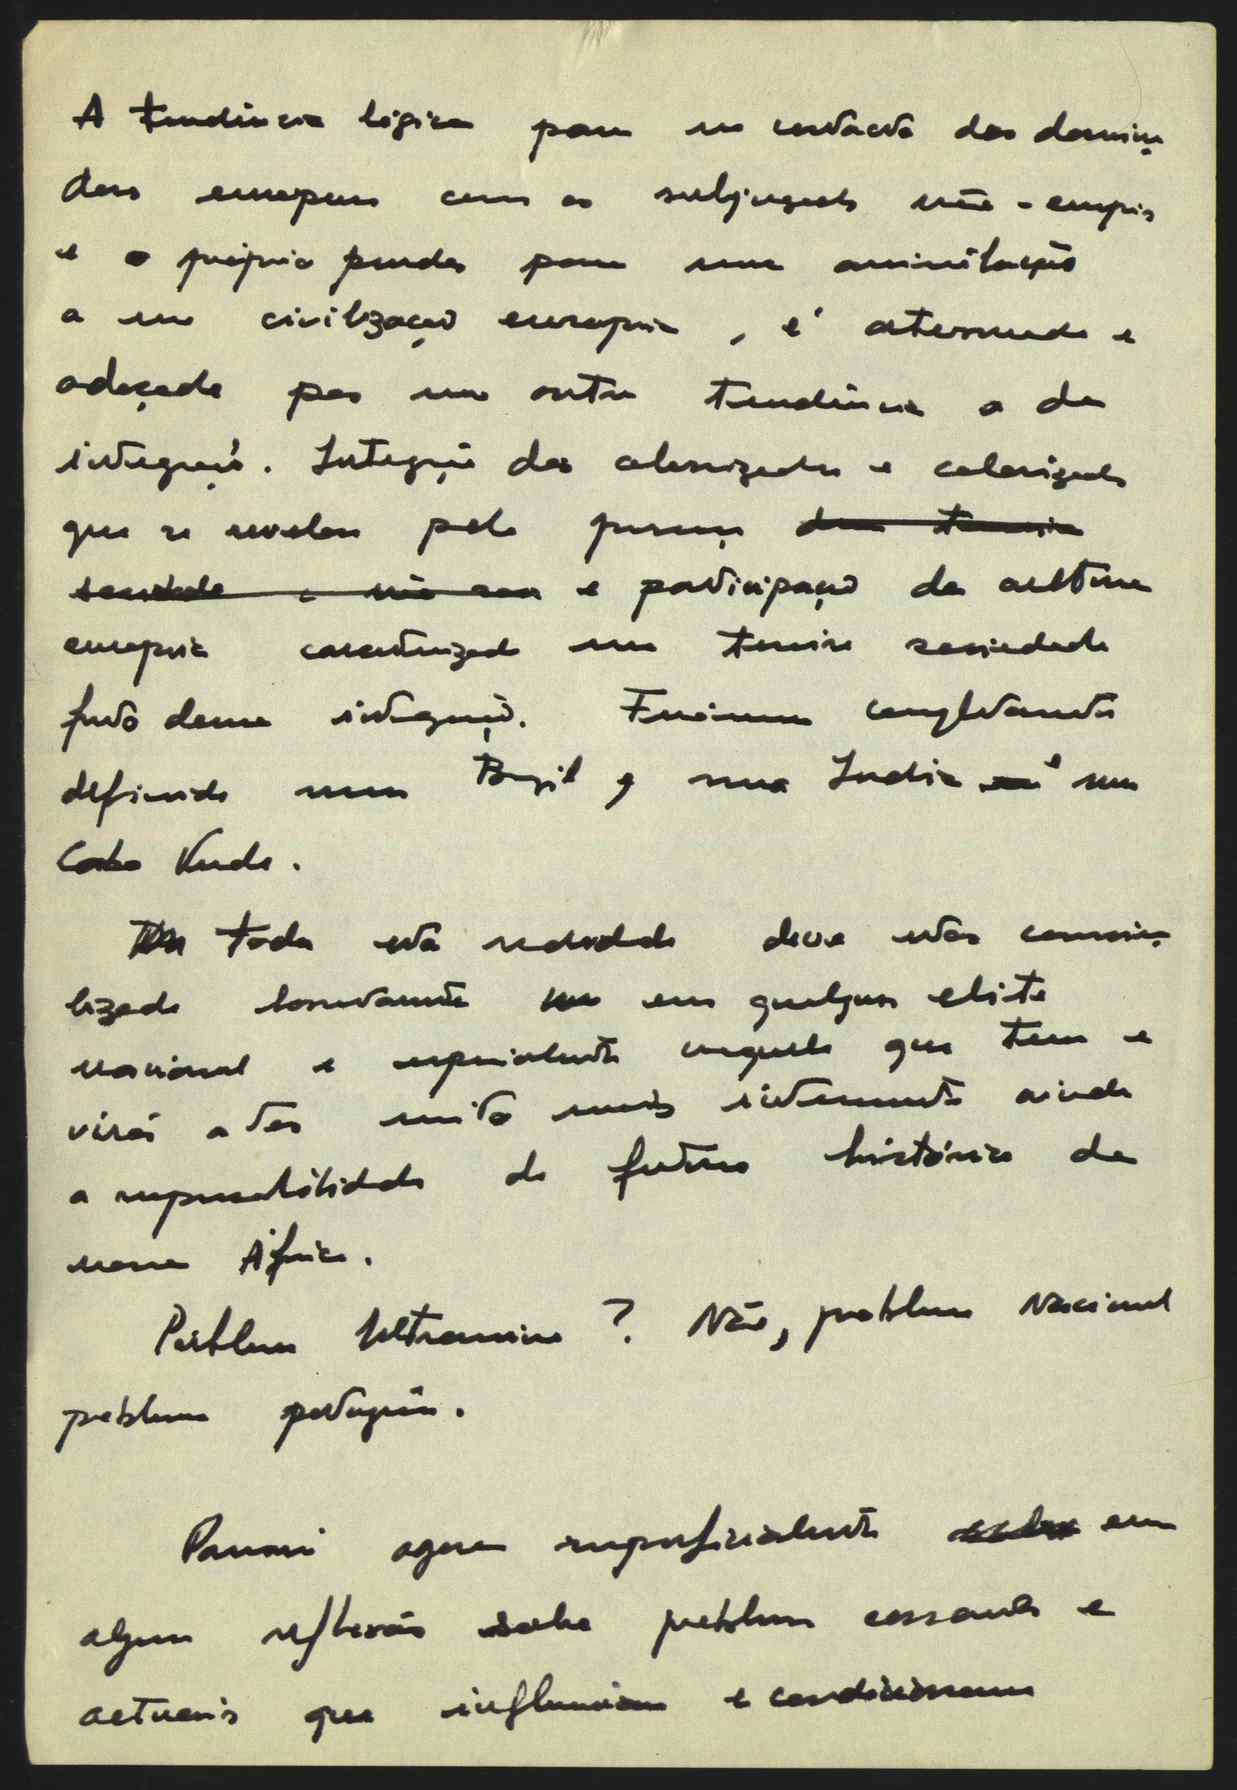 A tendência lógica para no contacto dos domina
dores europeus com os subjugados não-europeus
e o próprio pender para uma assimilação
a uma civilização europeia, é atenuada e
adoçada por uma outra tendência a da
integração. Integração dos colonizadores e colonizados
que se revelou pela presença
e participação da cultura
europeia caracterizada uma terceira sociedade
fruto dessa integração. Fenómeno completamente
definido num Brasil, numa India e num
Cabo Verde.
Toda esta realidade deve estar consciên
lizada honestamente em qualquer elite
nacional e especialmente naquela que tem e
virá a ter muito mais intensamente ainda
a responsabilidade do futuro histórico da
nossa África.
Problema Ultramarino? Não, problema Nacional
problema português.
Passarei agora superficialmente em
algumas reflexões sobre problemas e
actuais que influenciam e condicionam